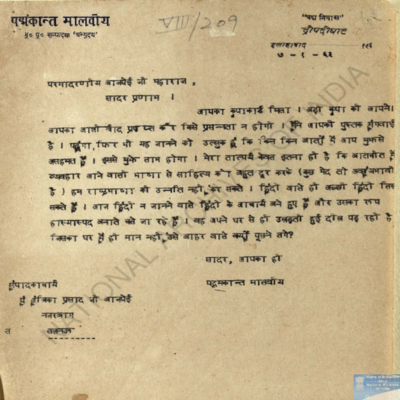 पद्मकान्त मालवीय
भू० पू० सम्पादक "अभ्युदय"
VIII/209
"पद्म निवास"
द्रौपदीघाट
इलाहाबाद १९६
७-१-६२
परमादरणीय बाजपेई जी महाराज,
सादर प्रणाम ।
आपका कृपाकार्ड मिला । बड़ी कृपा की आपने।
आपका आशीर्वाद प्राप्त कर किसे प्रसन्नता न होगी । मैंने आपकी पुस्तक
है । पढ़ूंगा, फिर भी यह जानने को उत्सुक हूं कि किन किन बातों में आप मुझसे
असहमत हैं । इससे मुझे लाभ होगा । मेरा तात्पर्य केवल इतना ही है कि बातचीत में
व्यवहार आने वाली भाषा से साहित्य को बहुत दूर करके (कुछ भेद तो अवश्यंभावी
है ) हम राष्ट्रभाषा की उन्नति नहीं कर सकते । हिंदी वाले ही अच्छी हिंदी लिख
सकते हैं । आज हिंदी न जानने वाले हिंदी के आचार्य बने हुए हैं और उसका रूप
हास्यास्पद बनाते चले जा रहे हैं । यह अपने घर से ही उलझती हुई दीख पड़ रही है
जिसका घर में ही मान नहीं, उसे बाहर वाले क्यों पूछने लगे?
सादर, आपका ही
पद्मकान्त मालवीय
संपादकाचार्य
पं० अंबिका प्रसाद जी बाजपेई
नजरबाग
लखनऊ
NATIONAL ARCHIVES OF INDIA